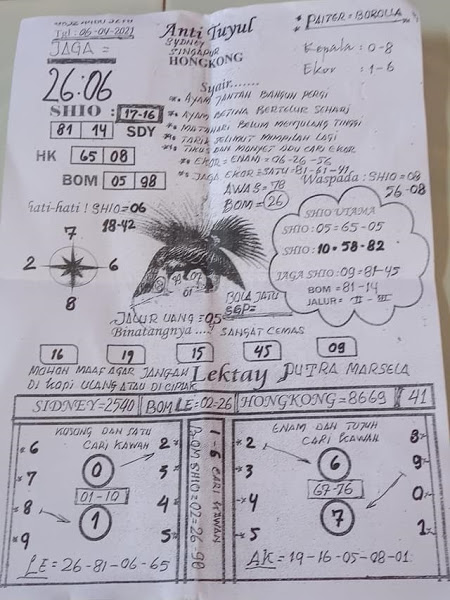 Tgl : 06-04-2021
JAGA =
26:06
Anti Tuyul
SYDNEY
SINGAPUR
HONGKONG
* PAITER = BOROLLA
Kepala : 0-8
Ekor : 1-6
SHIO : 17-16
81 14 SDY
HK 65 08
BOM 05 98
Syair.......
*. AYAM JANTAN BANGUN PERGI
*. AYAM BETINA BERTELUR SEHARI
*. MATAHARI BELUM MENJULANG TINGGI
*. TARIK SELIMUT MIMPILAH LAGI
*. TIKUS DAN MONYET ADU CARI EKOR
*. EKOR = ENAM = 06-26-56
*. JAGA EKOR = SATU = 81-61-41
AWAS = 78
BOM = 26
Waspada : SHIO = 08
56-08
hati-hati ! SHIO = 06
18-42
7
2 6
8
SHIO UTAMA
SHIO : 05 = 65-05
SHIO : 10 = 58-82
JAGA SHIO : 09 = 81-45
BOM = 81-14
JALUR = II - III
JALUR UANG = 05
BOLA JATU
SGP =
Binatangnya .... SANGAT CEMAS
16 19 15 45 09
MOHON MAAF AGAR JANGAN
DI KOPI ULANG ATAU DI CIPLAK
Lektay PUTRA MARSELA
SIDNEY = 2540 BOM LE = 02-26 HONGKONG = 8669 41
KOSONG DAN SATU
CARI KAWAN
* 6
* 7
* 8
* 9
0
01-10
1
2 *
5 *
4 *
5 *
LE = 26-81-06-65
BOM SHIO = 02 = 26-90
1-6 CARI KAWAN
ENAM DAN TUJUH
CARI KAWAN
* 2
* 3
* 4
* 5
6
67-76
7
8 *
9 *
0 *
1 *
AK = 19-16-05-08-01